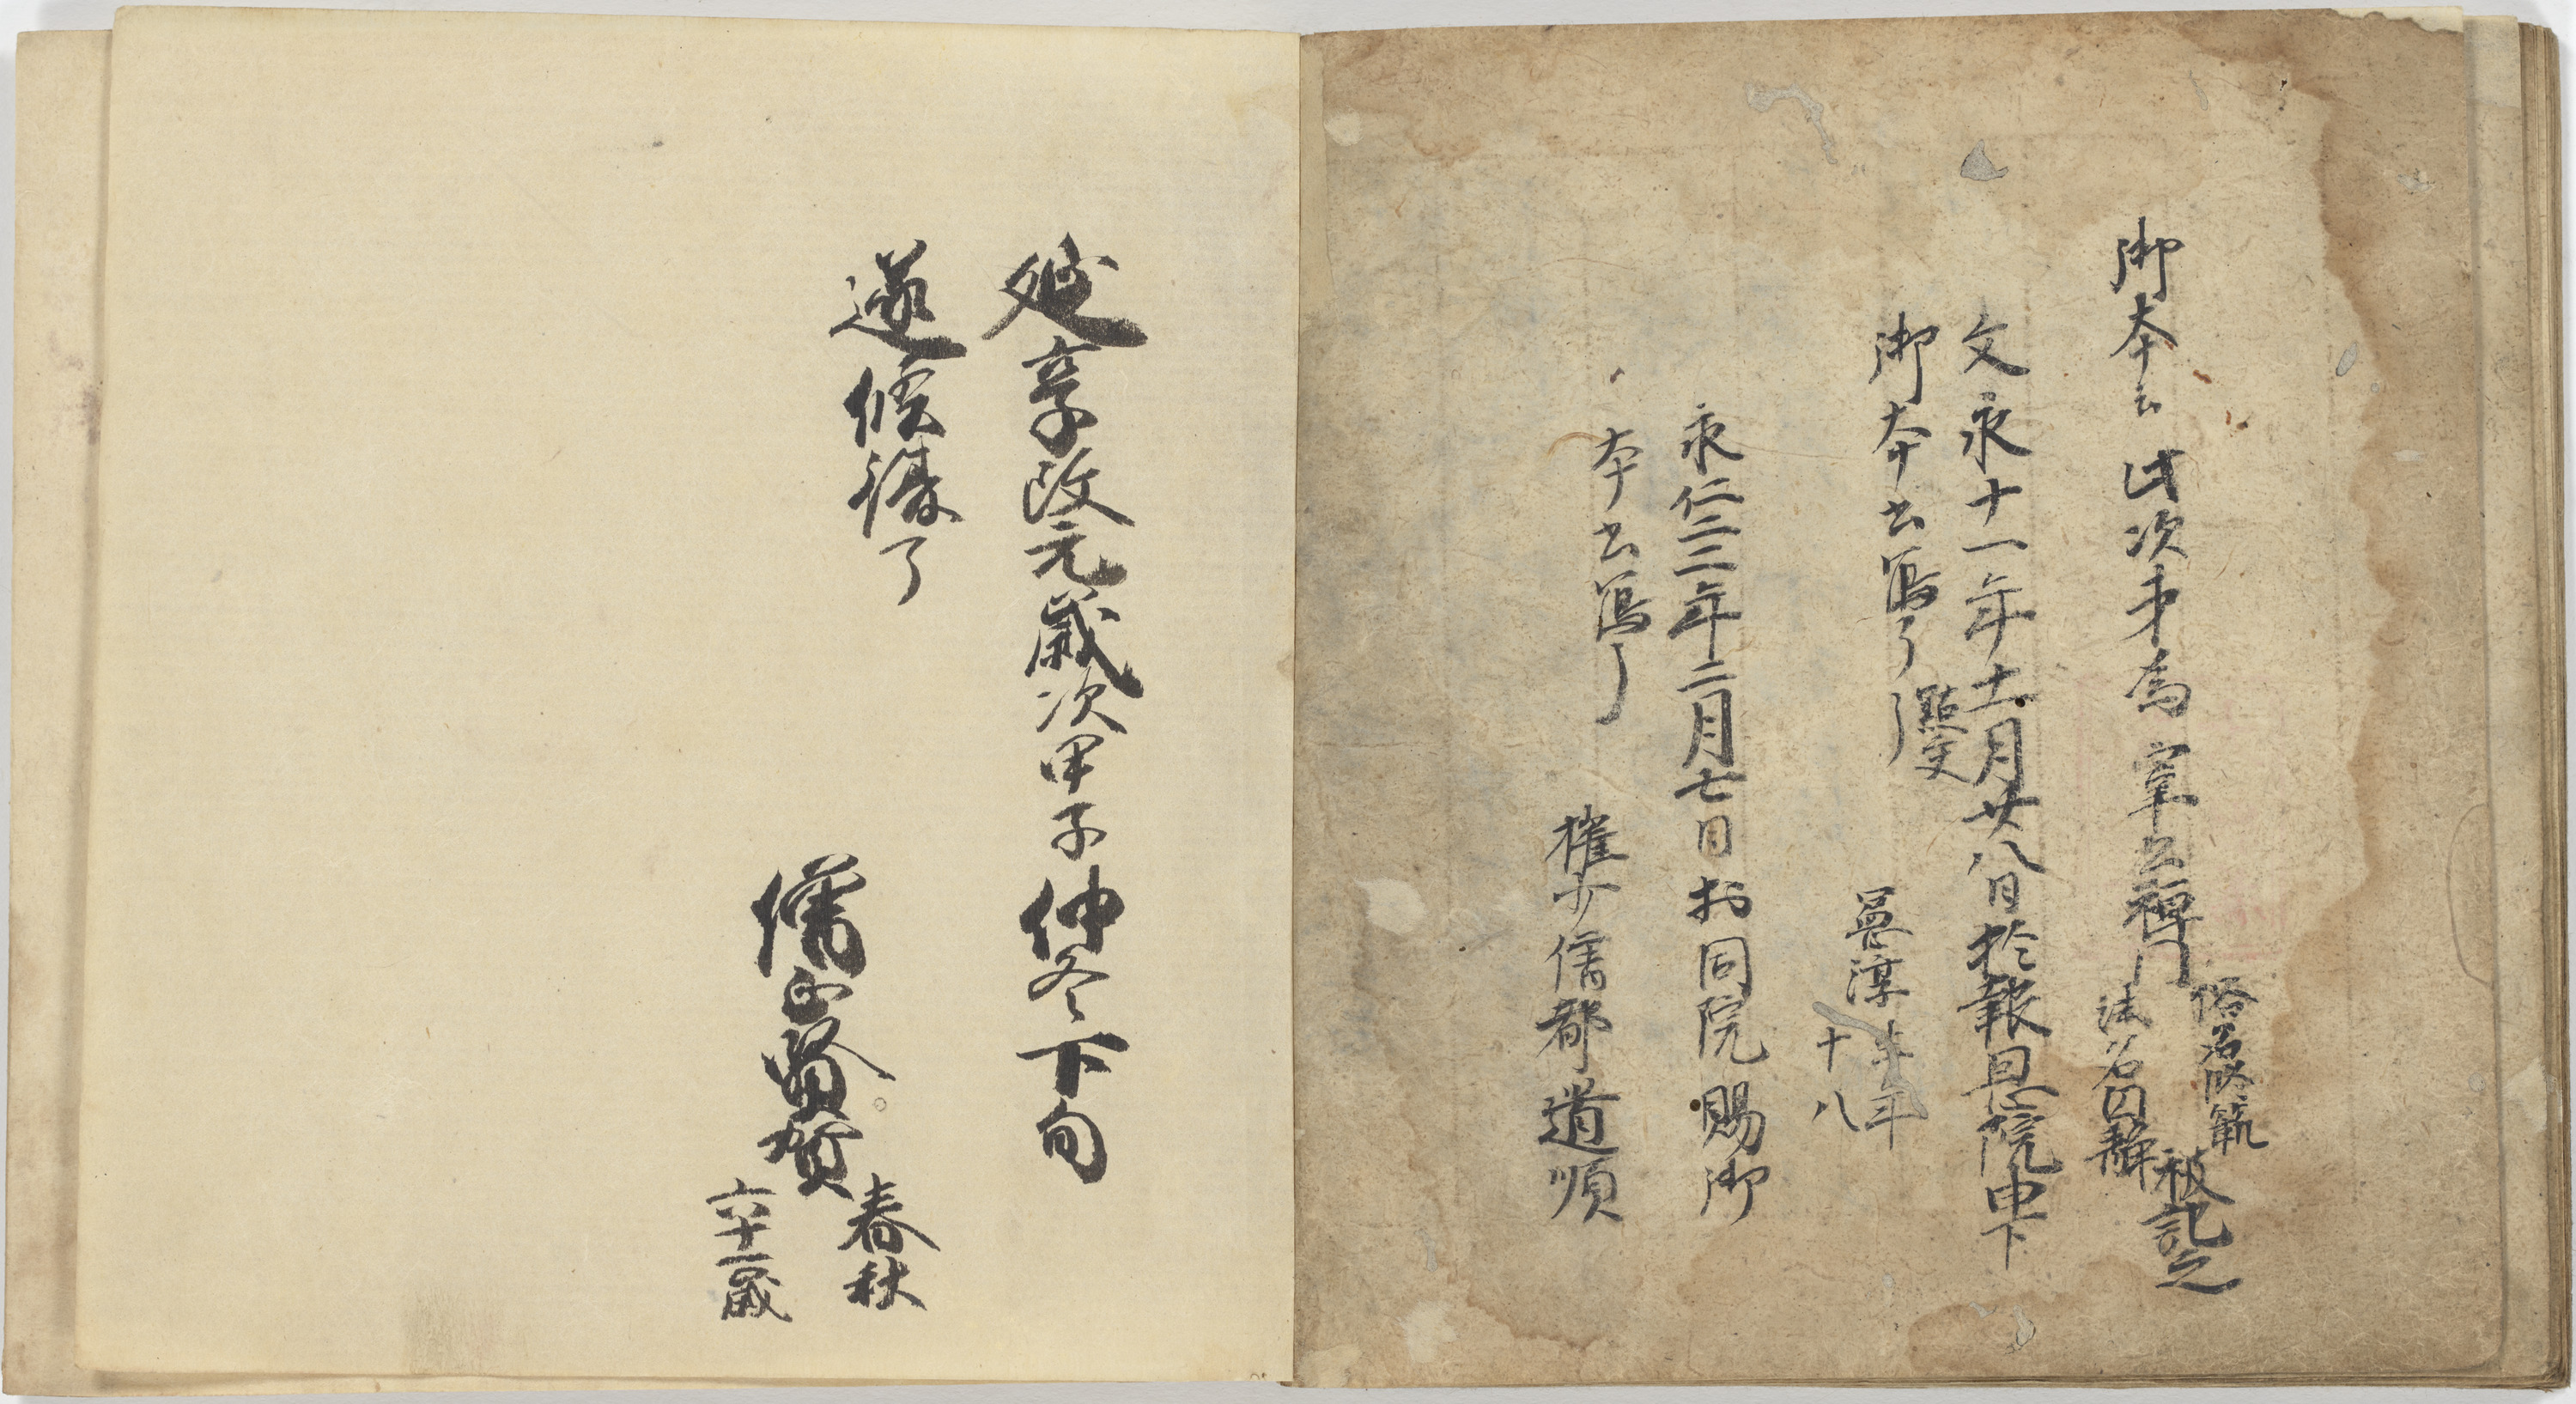 御本云此次第為宰相禅門
俗名
法名円静
被記之
文永十一年十一月廿八日於報恩院申下
御本書写了
憲淳
生年
十八
永仁三年二月七日於同院賜御
本書写了
権少僧都道順
延享改元歳次甲子仲冬下旬
遂修複了
僧正賢賀
春秋
六十一歳